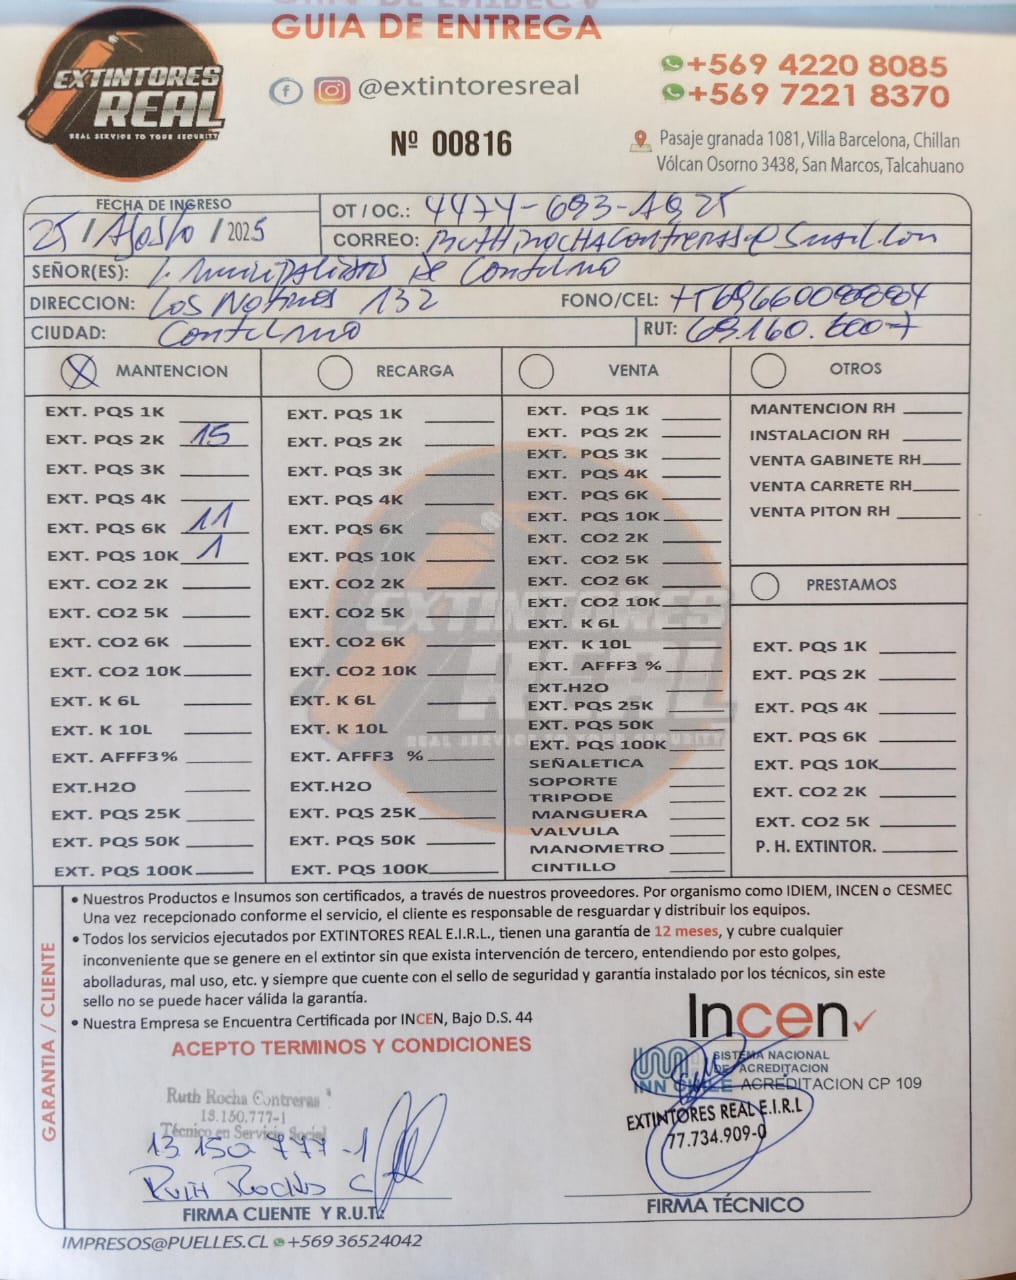 GUIA DE ENTREGA
EXTINTORES
REAL
REAL SERVICE TO YOUR SECURITY
@extintoresreal
+569 4220 8085
+569 7221 8370
Nº 00816
Pasaje granada 1081, Villa Barcelona, Chillan
Vólcan Osorno 3438, San Marcos, Talcahuano
FECHA DE INGRESO
25 / Agosto / 2025
OT / OC.: 4474-693-AG25
CORREO:
SEÑOR(ES): I. Municipalidad de Contulmo
DIRECCION: Los Notros 132
FONO/CEL:
CIUDAD: Contulmo
RUT: 69.160.600-7
MANTENCION
EXT. PQS 1K
EXT. PQS 2K 15
EXT. PQS 3K
EXT. PQS 4K
EXT. PQS 6K 11
EXT. PQS 10K 1
EXT. CO2 2K
EXT. CO2 5K
EXT. CO2 6K
EXT. CO2 10K
EXT. K 6L
EXT. K 10L
EXT. AFFF3%
EXT.H2O
EXT. PQS 25K
EXT. PQS 50K
EXT. PQS 100K
RECARGA
EXT. PQS 1K
EXT. PQS 2K
EXT. PQS 3K
EXT. PQS 4K
EXT. PQS 6K
EXT. PQS 10K
EXT. CO2 2K
EXT. CO2 5K
EXT. CO2 6K
EXT. CO2 10K
EXT. K 6L
EXT. K 10L
EXT. AFFF3 %
EXT.H2O
EXT. PQS 25K
EXT. PQS 50K
EXT. PQS 100K
VENTA
EXT. PQS 1K
EXT. PQS 2K
EXT. PQS 3K
EXT. PQS 4K
EXT. PQS 6K
EXT. PQS 10K
EXT. CO2 2K
EXT. CO2 5K
EXT. CO2 6K
EXT. CO2 10K
EXT. K 6L
EXT. K 10L
EXT. AFFF3 %
EXT.H2O
EXT. PQS 25K
EXT. PQS 50K
EXT. PQS 100K
SEÑALETICA
SOPORTE
TRIPODE
MANGUERA
VALVULA
MANOMETRO
CINTILLO
OTROS
MANTENCION RH
INSTALACION RH
VENTA GABINETE RH
VENTA CARRETE RH
VENTA PITON RH
PRESTAMOS
EXT. PQS 1K
EXT. PQS 2K
EXT. PQS 4K
EXT. PQS 6K
EXT. PQS 10K
EXT. CO2 2K
EXT. CO2 5K
P. H. EXTINTOR.
EXTINTORES
REAL
REAL SERVICE TO YOUR SECURITY
GARANTIA / CLIENTE
• Nuestros Productos e Insumos son certificados, a través de nuestros proveedores. Por organismo como IDIEM, INCEN o CESMEC
Una vez recepcionado conforme el servicio, el cliente es responsable de resguardar y distribuir los equipos.
• Todos los servicios ejecutados por EXTINTORES REAL E.I.R.L., tienen una garantía de 12 meses, y cubre cualquier
inconveniente que se genere en el extintor sin que exista intervención de tercero, entendiendo por esto golpes,
abolladuras, mal uso, etc. y siempre que cuente con el sello de seguridad y garantía instalado por los técnicos, sin este
sello no se puede hacer válida la garantía.
• Nuestra Empresa se Encuentra Certificada por INCEN, Bajo D.S. 44
ACEPTO TERMINOS Y CONDICIONES
Incen
INN CHILE
SISTEMA NACIONAL
DE ACREDITACION
ACREDITACION CP 109
EXTINTORES REAL E.I.R.L
77.734.909-0
Ruth Rocha Contreras
13.150.777-1
Técnico en Servicio Social
13 150 777-1
Ruth Rocha C
FIRMA CLIENTE Y R.U.T.
FIRMA TÉCNICO
IMPRESOS@PUELLES.CL +569 36524042